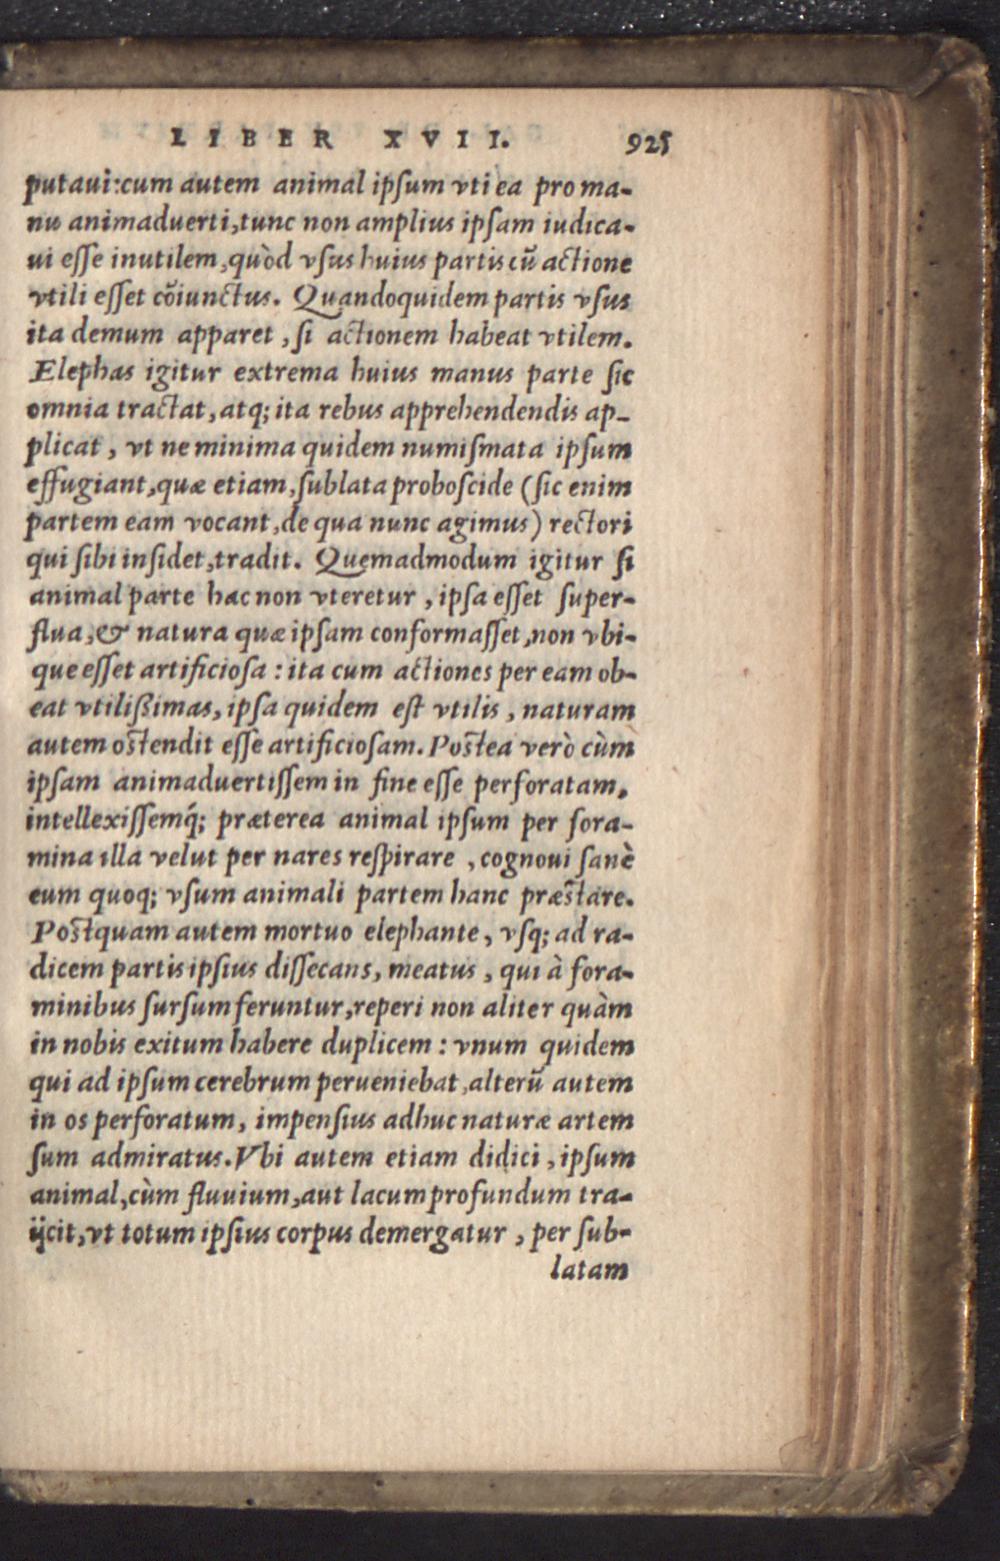 LIBER XVII. 925
putaui: cum autem animal ipſum vti ea pro ma-
nu animaduerti, tunc non amplius ipſam iudica-
ui eſſe inutilem, quòd vſus huius partis cū actione
vtili eſſet cōiunctus. Quandoquidem partis vſus
ita demum apparet, ſi actionem habeat vtilem.
Elephas igitur extrema huius manus parte ſic
omnia tractat, atq; ita rebus apprehendendis ap-
plicat, vt ne minima quidem numiſmata ipſum
effugiant, quæ etiam, ſublata proboſcide (ſic enim
partem eam vocant, de qua nunc agimus) rectori
qui ſibi inſidet, tradit. Quemadmodum igitur ſi
animal parte hac non vteretur, ipſa eſſet ſuper-
flua, & natura quæ ipſam conformaſſet, non vbi-
que eſſet artificioſa: ita cum actiones per eam ob-
eat vtilißimas, ipſa quidem eſt vtilis, naturam
autem oſtendit eſſe artificioſam. Poſtea verò cùm
ipſam animaduertiſſem in fine eſſe perforatam,
intellexiſſemq́; præterea animal ipſum per fora-
mina illa velut per nares reſpirare, cognoui ſanè
eum quoq; vſum animali partem hanc præſtare.
Poſtquam autem mortuo elephante, vſq; ad ra-
dicem partis ipſius diſſecans, meatus, qui à fora-
minibus ſurſum feruntur, reperi non aliter quàm
in nobis exitum habere duplicem: vnum quidem
qui ad ipſum cerebrum perueniebat, alterū autem
in os perforatum, impenſius adhuc naturæ artem
ſum admiratus. Vbi autem etiam didici, ipſum
animal, cùm fluuium, aut lacum profundum tra-
ijcit, vt totum ipſius corpus demergatur, per ſub-
latam